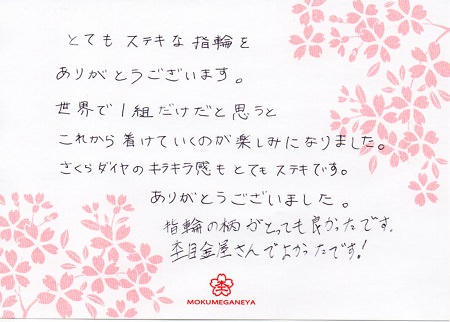 とても ステキな 指輪を
ありがとうございます。
世界で１組だけだと思うと
これから着けていくのが楽しみになりました。
さくらダイヤのキラキラ感もとてもステキです。
ありがとうございました。
指輪の柄がとっても良かったです。
杢目金屋さんでよかったです!
MOKUMEGANEYA